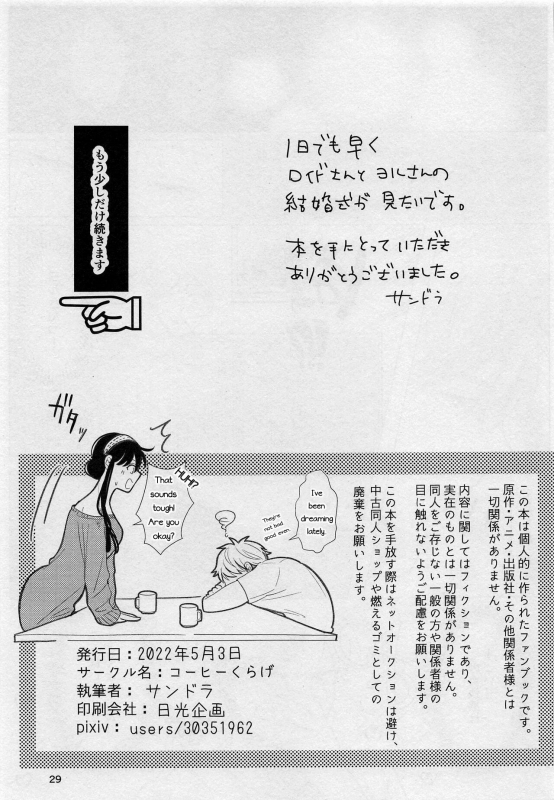 1日でも早く
ロイドさんとヨルさんの
結婚式が見たいです。
本を手にとっていただき
ありがとうございました。
サンドラ
もう少しだけ続きます
ガタッ
この本は個人的に作られたファンブックです。
原作・アニメ・出版社・その他関係者様とは
一切関係がありません。
内容に関してはフィクションであり、
実在のものとは一切関係がありません。
同人をご存じない一般の方や関係者様の
目に触れないようご配慮をお願いします。
この本を手放す際はネットオークションは避け、
中古同人ショップや燃えるゴミとしての
廃棄をお願いします。
I've
been
dreaming
lately.
They're not
bad
good even.
HUH!?
That
sounds
tough! Are
you
okay?
発行日：2022年5月3日
サークル名：コーヒーくらげ
執筆者： サンドラ
印刷会社： 日光企画
pixiv： users/30351962
29